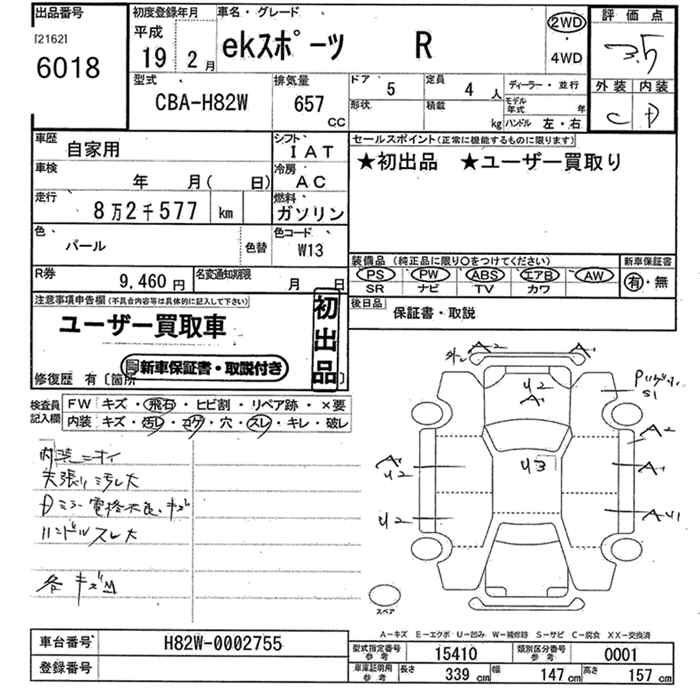 出品番号
[2162]
6018
初度登録年月
平成
19年 2月
車名・グレード
ekスポーツ R
2WD
・
4WD
評価点
3.5
外装 内装
C D
型式
CBA-H82W
排気量
657
CC
ドア 5
定員 4 人
ディーラー・並行
形状
積載 kg
モデル年式 年
ハンドル 左・右
車歴
自家用
シフト
IAT
車検
年 月( 日)
冷房
AC
走行
8万2千577 km
燃料
ガソリン
色
パール
色替
色コード
W13
R券
9,460 円
名変通知期限
月 日
セールスポイント(正常に機能するものに限ります)
★初出品 ★ユーザー買取り
装備品(純正品に限り○をつけてください)
PS PW ABS エアB AW
SR ナビ TV カワ
新車保証書
有・無
後日品
保証書・取説
注意事項申告欄(不具合内容等は具体的に記入して下さい)
ユーザー買取車
初出品
新車保証書・取説付き
修復歴 有〔箇所
検査員記入欄
FW キズ・飛石・ヒビ割・リペア跡・×要
内装 キズ・汚レ・コゲ・穴・スレ・キレ・破レ
内装ニオイ
天張り汚レ大
Dミラー電格不良、キズ
ハンドルスレ大
各キズM
A2 A1
U2
A1
S1
A2
A1
U2
A1
U3
U2
AU1
スペア
A-キズ E-エクボ U-凹み W-補修跡 S-サビ C-腐食 XX-交換済
車台番号
H82W-0002755
登録番号
型式指定番号 参考
15410
類別区分番号 参考
0001
車庫証明用 参考
長さ 339 cm 幅 147 cm 高さ 157 cm